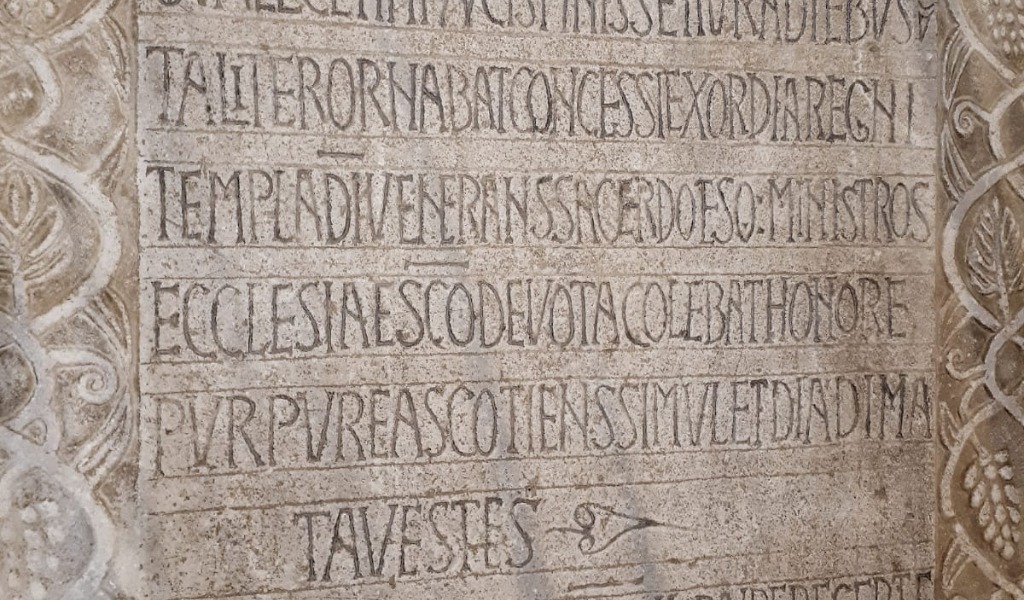 DIEBVS
TALITERORNABATCONCESSIEXORDIAREGNI
TEMPLADIVENERANSSACERDOESQ:MINISTROS
ECCLESIAESCODEVOTACOLEBATHONORE
PVRPVREASCOTIENSSIMVLETDIADIMA
TAVESTES